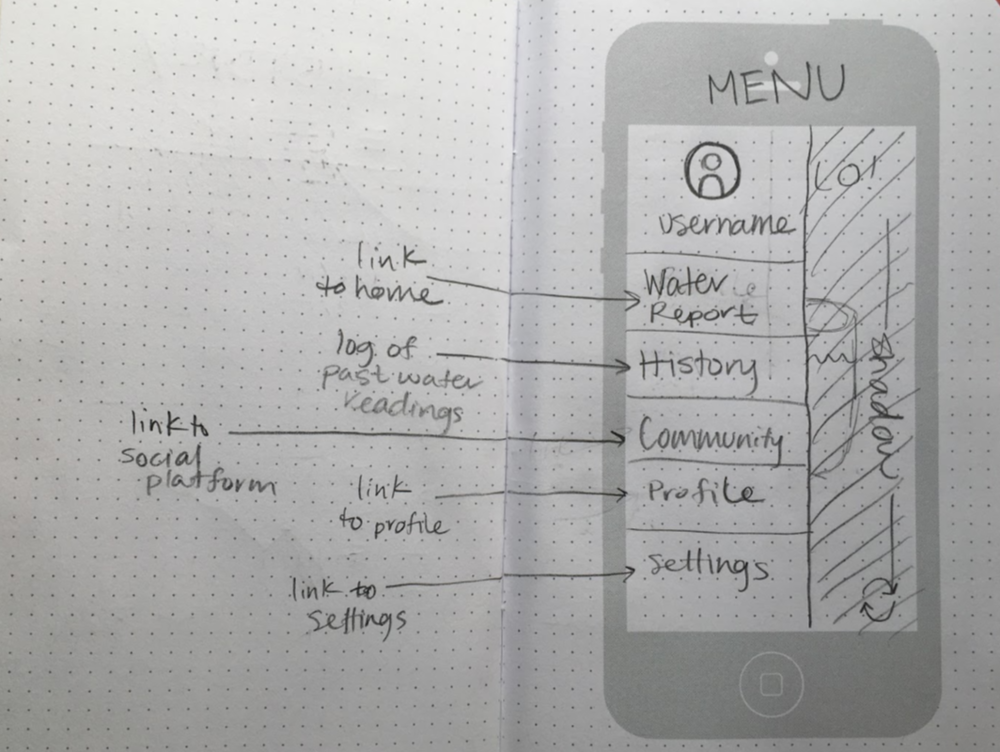 MENU
username
link
to home
Water
Report
log of
past water
readings
History
link to
social
platform
Community
link
to profile
Profile
link to
settings
settings
LO!
shadow